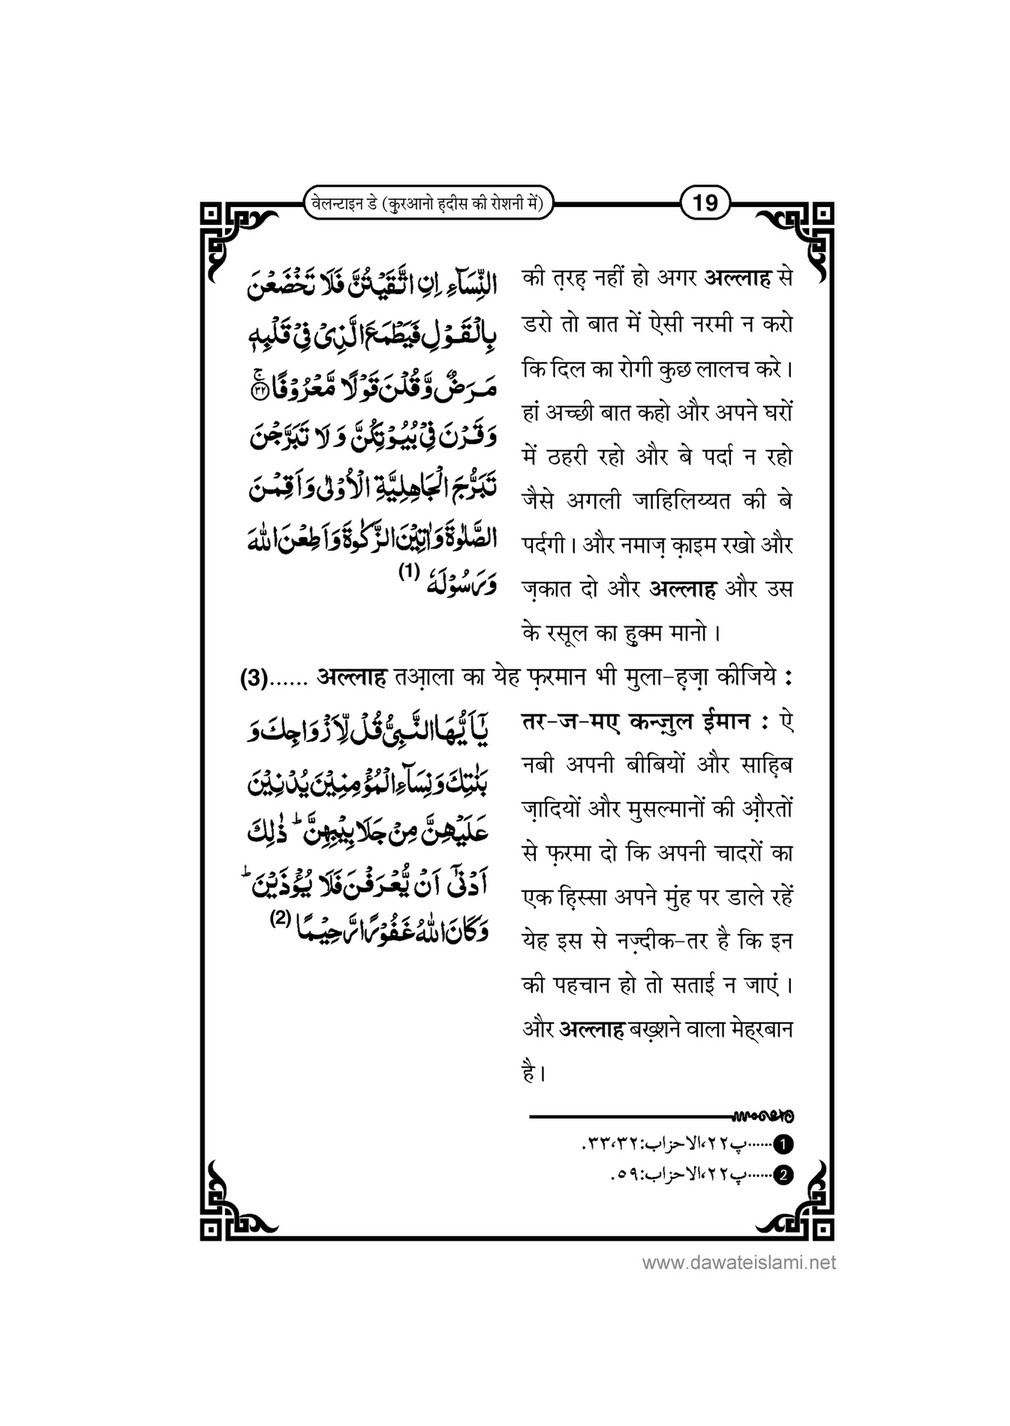 वेलन्टाइन डे (कुरआनो ह़दीस की रोशनी में)
19
النِّسَآءِ اِنِ اتَّقَیْتُنَّ فَلَا تَخْضَعْنَ
بِالْقَوْلِ فَیَطْمَعَ الَّذِیْ فِیْ قَلْبِهٖ
مَرَضٌ وَّقُلْنَ قَوْلًا مَّعْرُوْفًاۚ۝۳۲
وَقَرْنَ فِیْ بُیُوْتِكُنَّ وَلَا تَبَرَّجْنَ
تَبَرُّجَ الْجَاهِلِیَّةِ الْاُوْلٰی وَاَقِمْنَ
الصَّلٰوةَ وَاٰتِیْنَ الزَّكٰوةَ وَاَطِعْنَ اللّٰهَ
وَرَسُوْلَهٗ (1)
की त़रह़ नहीं हो अगर अल्लाह से
डरो तो बात में ऐसी नरमी न करो
कि दिल का रोगी कुछ लालच करे ।
हां अच्छी बात कहो और अपने घरों
में ठहरी रहो और बे पर्दा न रहो
जैसे अगली जाहिलिय्यत की बे
पर्दगी । और नमाज़ क़ाइम रखो और
ज़कात दो और अल्लाह और उस
के रसूल का ह़ुक्म मानो ।
(3)...... अल्लाह तआ़ला का येह फ़रमान भी मुला-ह़ज़ा कीजिये :
یٰۤاَیُّهَا النَّبِیُّ قُلْ لِّاَزْوَاجِكَ وَ
بَنٰتِكَ وَنِسَآءِ الْمُؤْمِنِیْنَ یُدْنِیْنَ
عَلَیْهِنَّ مِنْ جَلَابِیْبِهِنَّ ؕ ذٰلِكَ
اَدْنٰۤی اَنْ یُّعْرَفْنَ فَلَا یُؤْذَیْنَ ؕ
وَكَانَ اللّٰهُ غَفُوْرًا رَّحِیْمًا (2)
तर-ज-मए कन्ज़ुल ईमान : ऐ
नबी अपनी बीबियों और साह़िब
ज़ादियों और मुसल्मानों की औ़रतों
से फ़रमा दो कि अपनी चादरों का
एक ह़िस्सा अपने मुंह पर डाले रहें
येह इस से नज़्दीक-तर है कि इन
की पहचान हो तो सताई न जाएं ।
और अल्लाह बख़्शने वाला मेह्रबान
है ।
1 ......پ ۲۲،الاحزاب:۳۲،۳۳.
2 ......پ ۲۲،الاحزاب:۵۹.
www.dawateislami.net